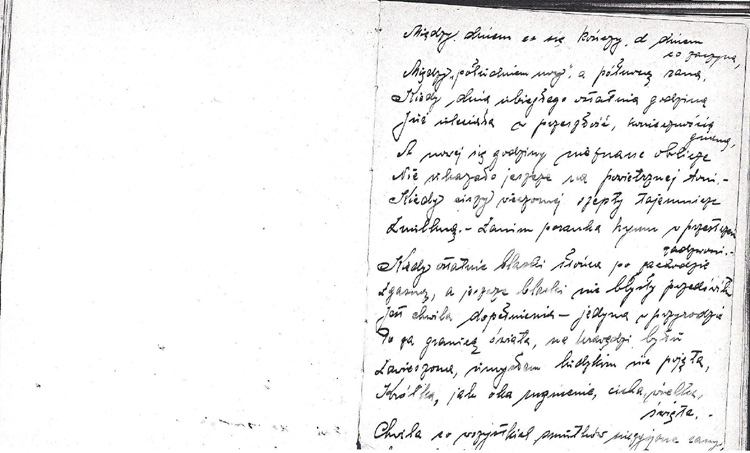 Między dniem co się kończy, a dniem
co zaczyna,
Między „południem nocy", a północą rana,
Kiedy dnia ubiegłego ostatnia godzina
Już uleciała w przeszłość, koniecznością
gnana,
A nowej się godziny nieznane oblicze
Nie ukazało jeszcze na powietrznej toni. –
Kiedy ciszy wieczornej szepty tajemnicze
Zmilkną. – Zanim poranka hymn w przestworzu
zadzwoni. –
Kiedy ostatnie blaski słońca po zachodzie
Zgasną, a jeszcze blaski nie błysły przedświtu
Jest chwila dopełnienia – jedyna w przyrodzie
Po za granicą świata, na krawędzi bytu
Zawieszona, umysłem ludzkim nie pojęta,
Krótka, jak oka mgnienie, cicha, wielka,
święta. –
Chwila co wszystkich smutków